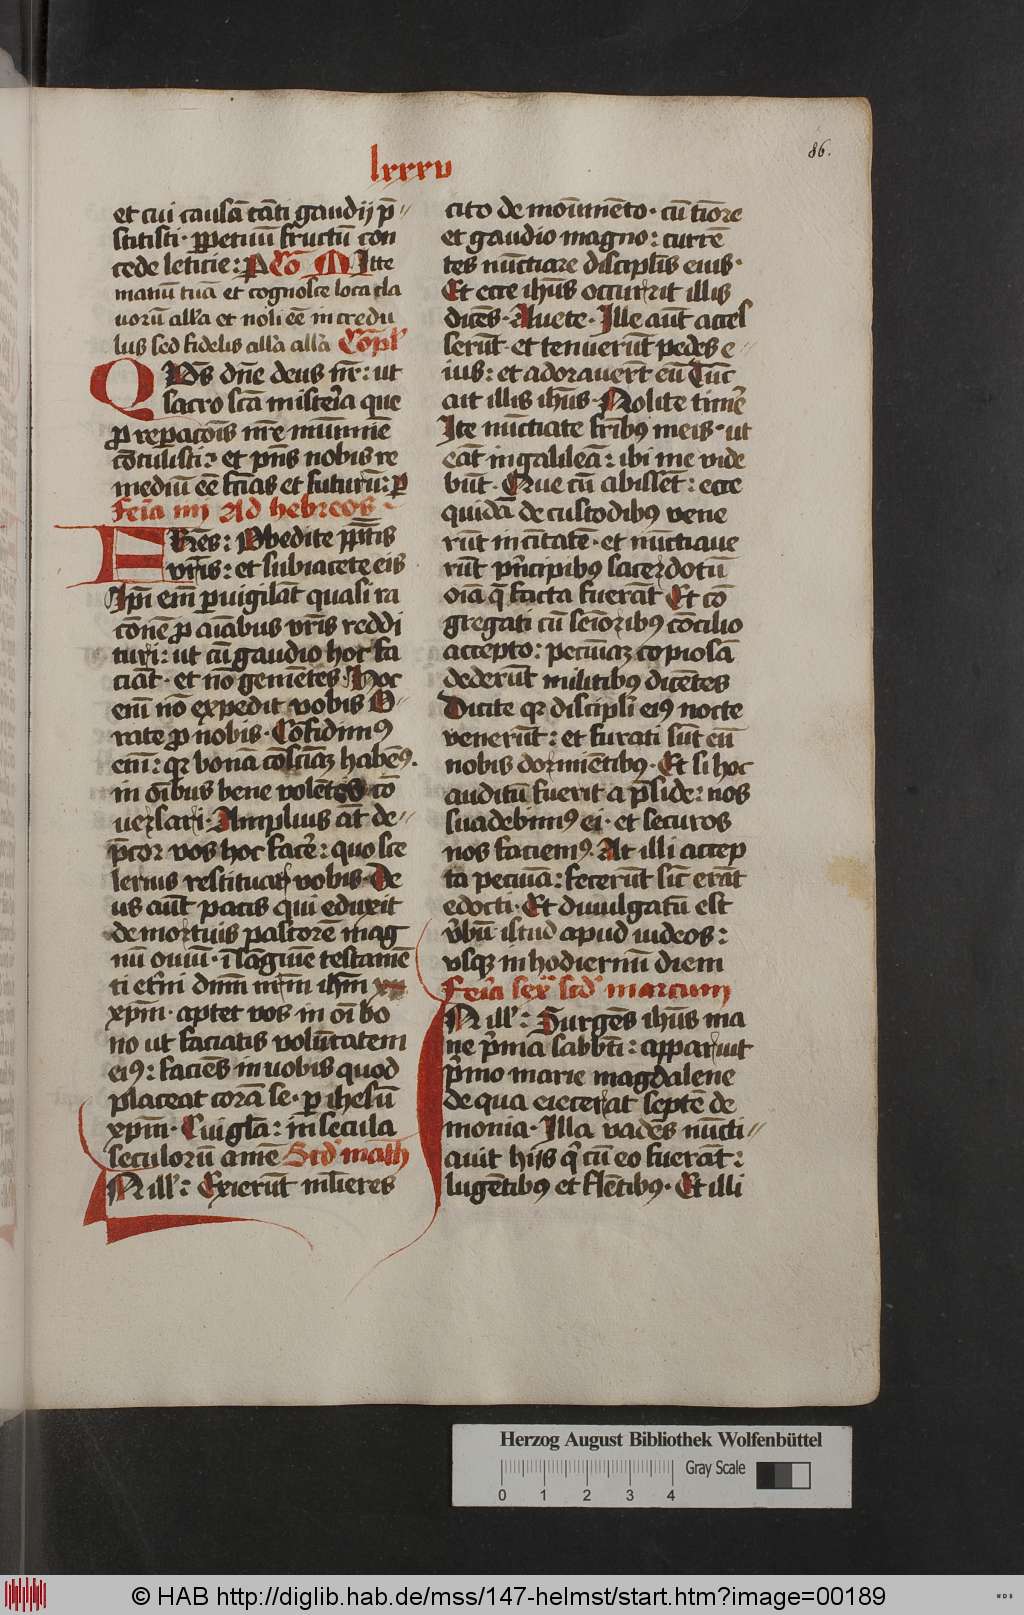 lxxxv
86.
et cui causā tāti gaudij p̄
stitisti · ꝑpetuū fructū con
cede leticie : P Cō Mitte
manū tuā et cognosce loca cla
uorū all'a et noli eē incredu
lus sed fidelis all'a all'a Cōpl'
Quēs dn̄e deus nr̄ : ut
sacro scā misteria que
ꝓ reꝑacōis nr̄e mūnimē
cōtulisti : et pn̄s nobis re
mediū eē fc̄ias et futurū : ꝑ
Fer̄ia iiij Ad hebreos
Fr̄es : Obedite pp̄itis
vr̄is : et subiacete eis
Ip̄i em̄ ꝑuigilāt quasi ra
cōnē ꝓ aīabus vr̄is reddi
turi : ut cū gaudio hoc fa
ciāt · et nō gemētes Hoc
em̄ nō expedit vobis O
rate ꝓ nobis · Cōfidimꝰ
em̄ : qꝛ bonā cōsciāꝫ habēꝰ.
in oībus bene volētes cō
uersari · Amplius āt de
p̄cor vos hoc facē : quo ce
lerius restituar vobis · De
us aūt pacis qui eduxit
de mortuis pastorē mag
nū ouiū · ī sāguīe testamē
ti et̄ni dnm̄ nr̄m ihm̄
xpm̄ · aptet vos in oī bo
no ut faciatis volūtatem
eiꝰ : faciēs in uobis quod
placeat corā se · ꝑ ihesū
xpm̄ · Cui gl'a : in secula
seculorū amē Scd' math
N ill' : Exierūt ml'ieres
cito de monumēto · cū timore
et gaudio magno : currē
tes nūctiare discipl'is eius ·
Et ecce ihūs occurrit illis
dicēs · Auete · Ille aūt acces
serūt · et tenuerūt pedes e
ius : et adorauert eū Tūc
ait illis ihūs · Nolite timē
Ite nūctiate fribꝰ meis · ut
eāt in galileā : ibi me vide
būt · Que cū abissēt : ecce
quidā de custodibꝰ vene
rūt in cītatē · et nūctiaue
rūt pn̄cipibꝰ sacerdotū
oīa q̄ facta fuerāt Et cō
gregati cū seīoribꝰ cōcilio
accepto : pecuīaꝫ copiosā
dederūt militibꝰ dicētes
Dicite qꝛ discipl'i eiꝰ nocte
venerūt : et furati sūt eū
nobis dormiētibꝰ · Et si hoc
auditū fuerit a p̄side : nos
suadebimꝰ ei · et securos
nos faciemꝰ. At illi accep
ta pecuīa : fecerūt sic̄ erāt
edocti · Et diuulgatū est
v̄bū istud apud iudeos :
vsqꝫ in hodiernū diem
Fer̄ia sex̄ scd' marcum
N ill' : Surgēs ihūs ma
ne p̄ma sabbīi : apparuit
p̄mo marie magdalene
de qua eiecerat septē de
monia · Illa vadēs nūcti
auit hijs q̄ cū eo fuerāt :
lugētibꝰ et flētibꝰ · Et illi
Herzog August Bibliothek Wolfenbüttel
Gray Scale
0 1 2 3 4
© HAB http://diglib.hab.de/mss/147-helmst/start.htm?image=00189